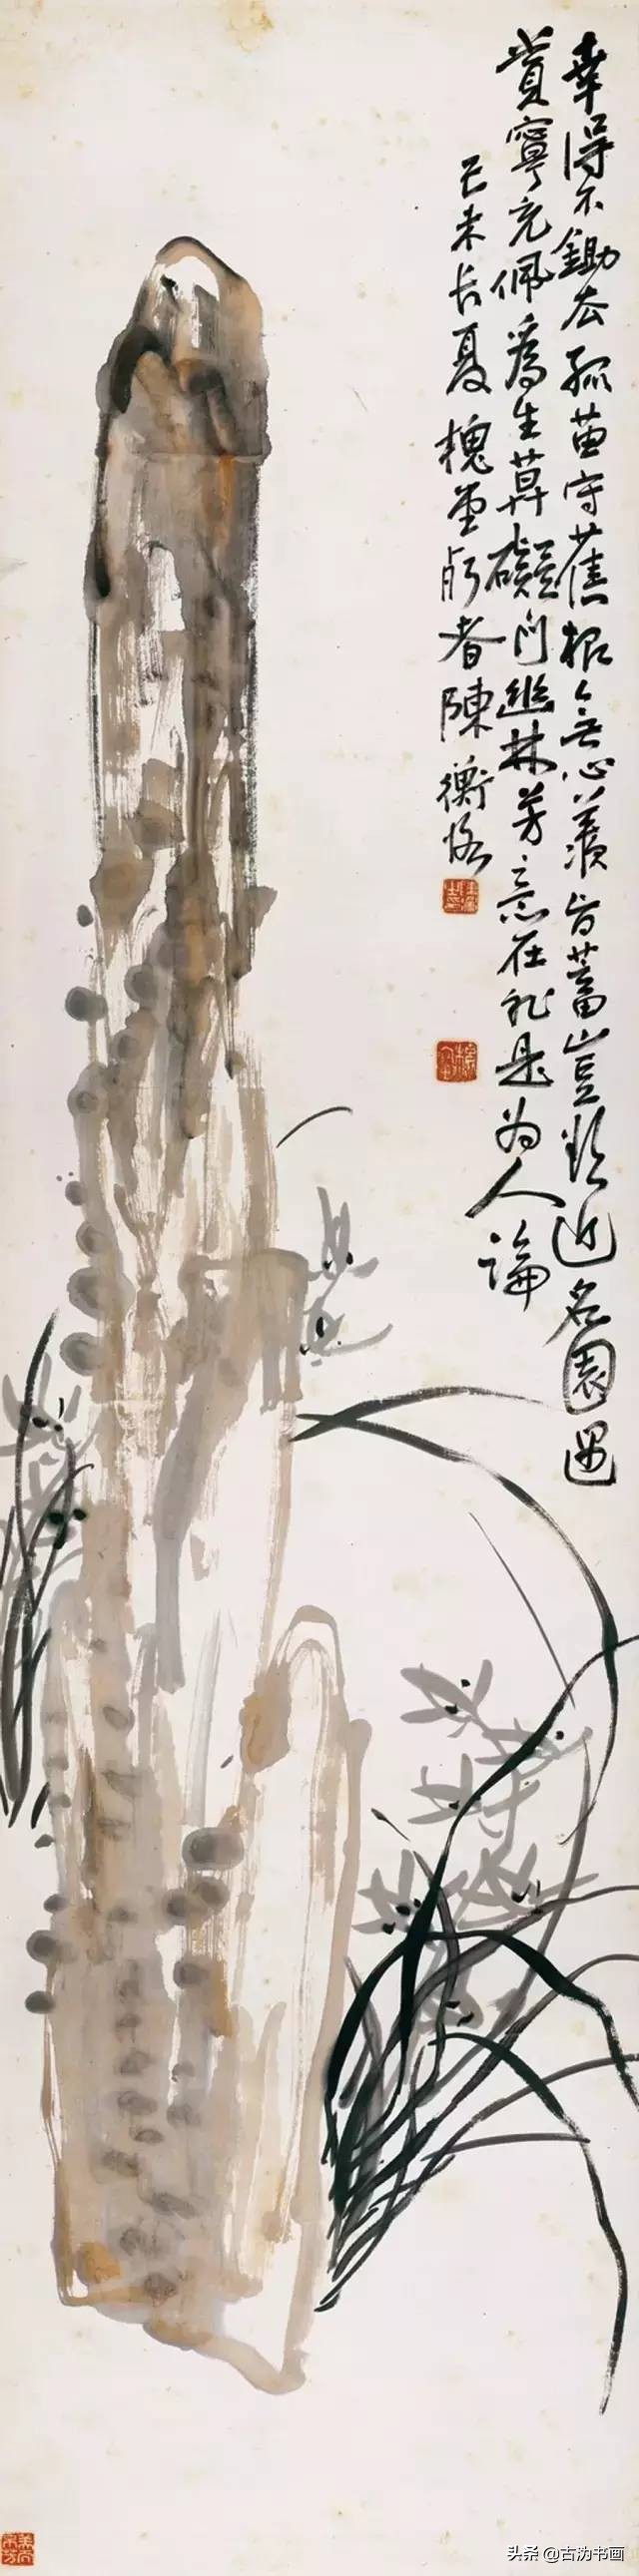 幸得不鋤去孤苗守舊根無心羨旨蓄豈欲近名園遇
賞寧充佩為生莫礙門幽林芳意在非是为人論
己未長夏槐堂朽者陳衡恪
头条 @古沩书画